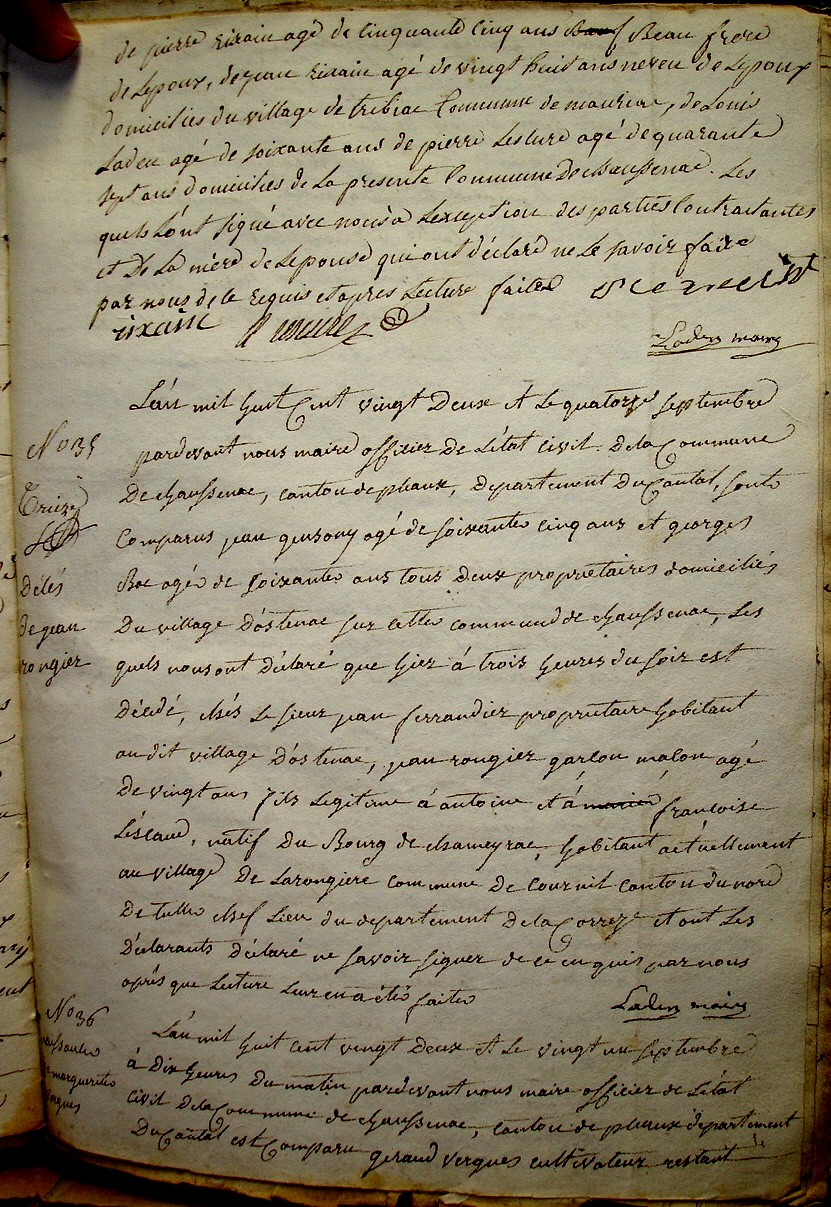 de pierre rixain agé de cinquante cinq ans Beauf Beau frere
de Lepoux, de jean rixain agé de vingt huit ans neveu de Lepoux
domiciliés du village de tribiac Commune de mauriac, de Louis
Laden agé de soixante ans de pierre Lescure agé de quarante
sept ans domiciliés de La presente Commune de chaussenac. Les
quels L'ont signé avec nous à Lexception des parties Contractantes
et de La mère de Lepouse qui ont déclaré ne Le savoir faire
par nous de ce requis et apres Lecture faite
rixain
Laden maire
L'an mil huit Cent vingt Deux et Le quatorze septembre
No 35
pardevant nous maire officier de L'état Civil De la Commune
De chaussenac, canton de pleaux, departement Du Cantal, sont
Comparus jean gensony agé de soixante cinq ans et georges
Roc agé de soixante ans tous Deux propriétaires domiciliés
Décés
de jean
rongier
Du village D'ostenac sur cette commune de chaussenac, Les
quels nous ont Déclaré que hier à trois heures du soir est
Décédé, chés Le sieur jean ferrandier propriétaire habitant
au dit village D'ostenac, jean rongier garcon maçon agé
De vingt ans fils Legitime à antoine et à marie françoise
Lescaud, natif Du Bourg de chameyrac, habitant actuellement
au village De Larongiere commune De Cournil canton du nord
De tulle chef Lieu du departement De la Correze et ont Les
Déclarants Déclaré ne savoir signer de ce enquis par nous
après que Lecture Leur en a été faite
Laden maire
No 36
naissance
de marguerite
vergnes
L'an mil huit cent vingt Deux et Le vingt un septembre
à Dix heures Du matin pardevant nous maire officier de L'état
civil De la Commune de chaussenac, canton de pleaux departement
Du Cantal est Comparu geraud vergnes cultivateur restant